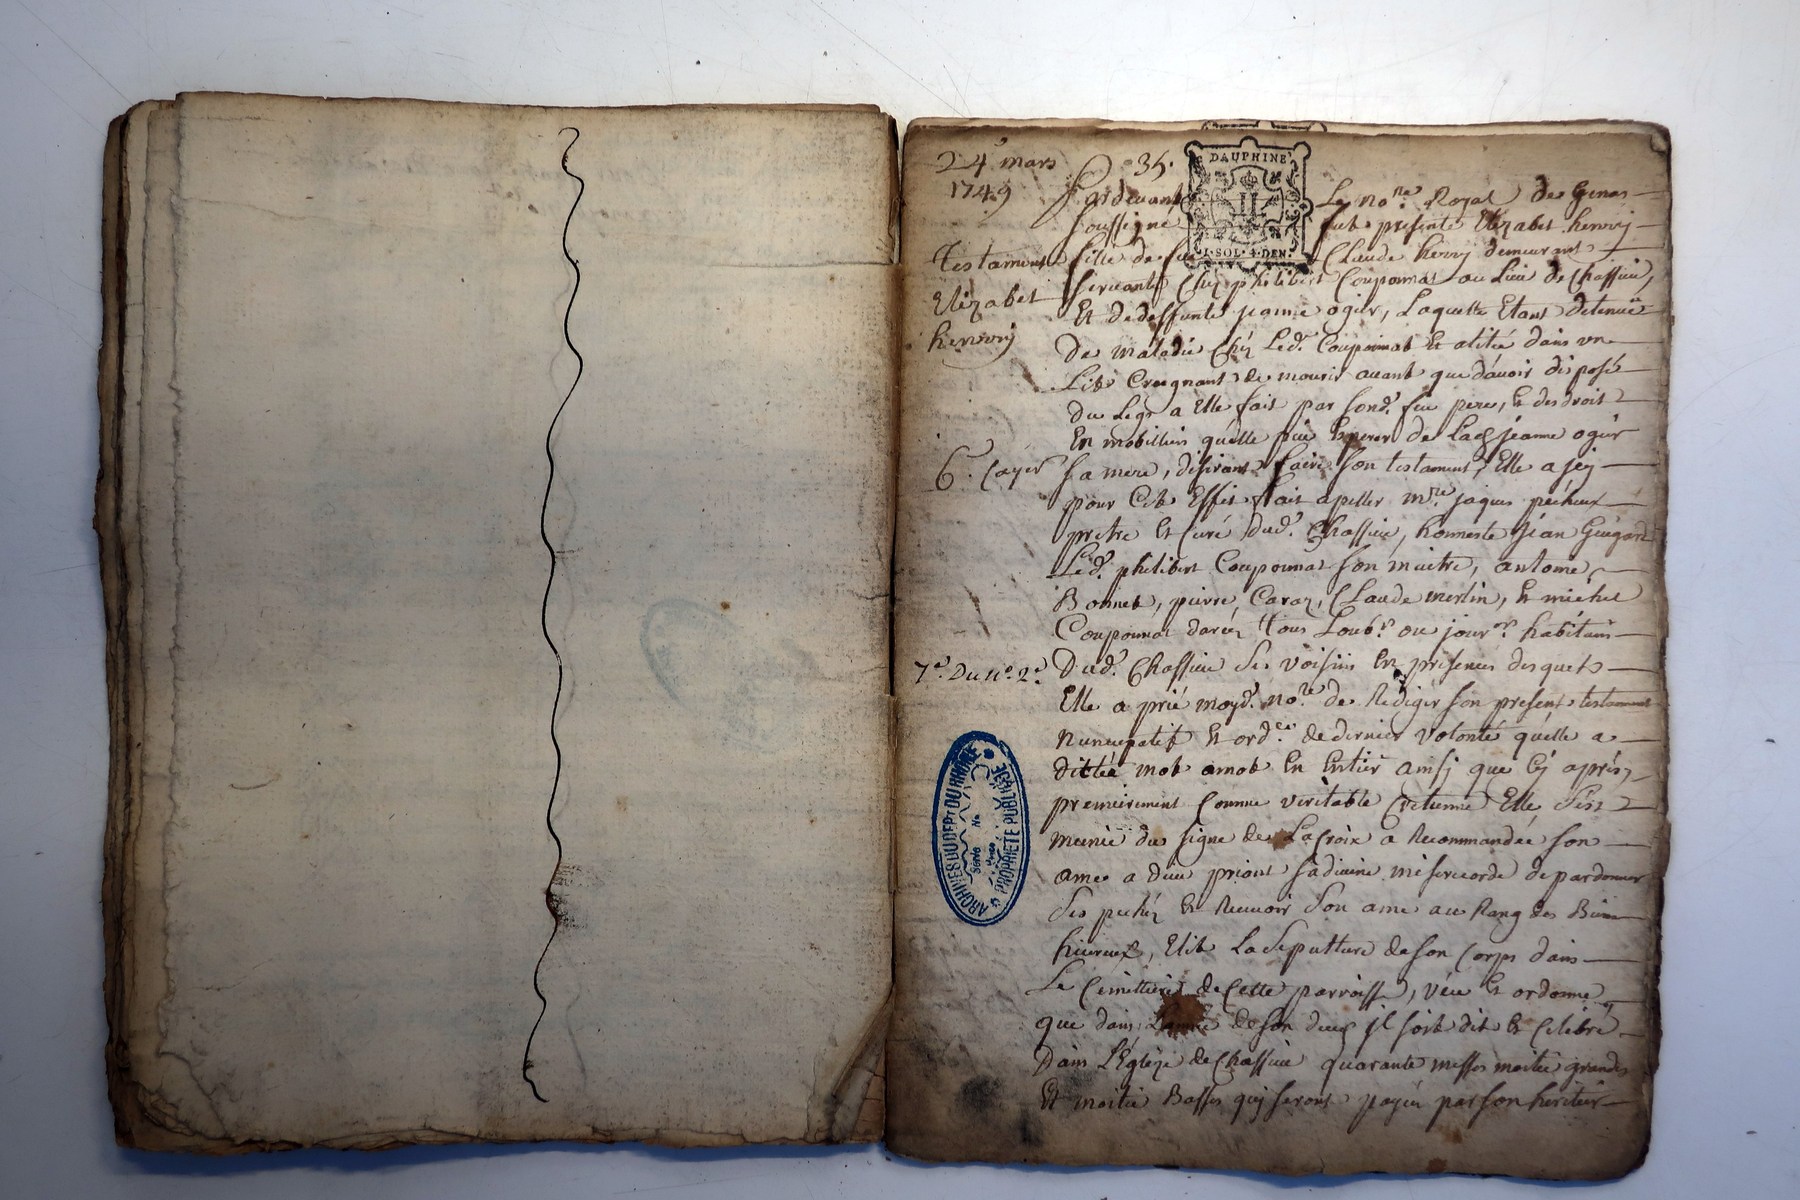 24e mars
1749
35.
DAUPHINE
1·SOL·4·DEN.
Testament
Elizabet
henrÿ
6e Cayer
7e. Du no. 2e.
ARCHIVES DU DEPt DU RHÔNE
PROPRIETE PUBLIQUE
Pardevant Le nore. Royal de Genas
soussigné fut presente Elizabet henrÿ
fille de feu Claude henrÿ demeurant
servante chéz philibert Couponnat au Lieu de Chassieu,
Et dedeffunte jeanne ogier, Laquelle Etant detenuë
De maladie chéz Ledt. Couponnat Et alitée dans un
Lit Craignant de mourir avant que d'avoir disposé
Du Legs a Elle fait par sondt. feu pere, et des droits
En mobilliers qu'elle peut Esperer de Lade jeanne ogier
sa mere, desirant faire son testament, Elle a fej
pour Cet Effet fait apeller mre. jaques pecheux
prêtre et Curé dudt. Chassieu, honneste jean Guigard
Ledt. philibert Couponnat son maitre, antoine
Bonnet, pierre Caraz, Claude merlin, et michel
Couponnat tous Labrs. ou jourers. habitans
Dudt. Chassieu ses voisins En presence desquels
Elle a prié moydt. nore. de Rediger son present testament
nuncupatif et ordce. de dernier volonté qu'elle a
dittée mot amot En Entier ainsj que Cj aprés,
premierement Comme veritable Cretienne Elle s'est
munie du signe de La Croix a Recommandée son
ame a dieu priant sa divine misericorde de pardonner
ses pechéz et Recevoir son ame au Rang des Bien
hureux, Elit La Sepulture de son Corps dans
Le Cemittiere de Cette parroisse, veut et ordonne
que dans L'année de son deces jl soit dit et Celebré
Dans L'Eglize de Chassieu quarante messes moitié grandes
Et moitié Basses quj seront payéz par son heritier